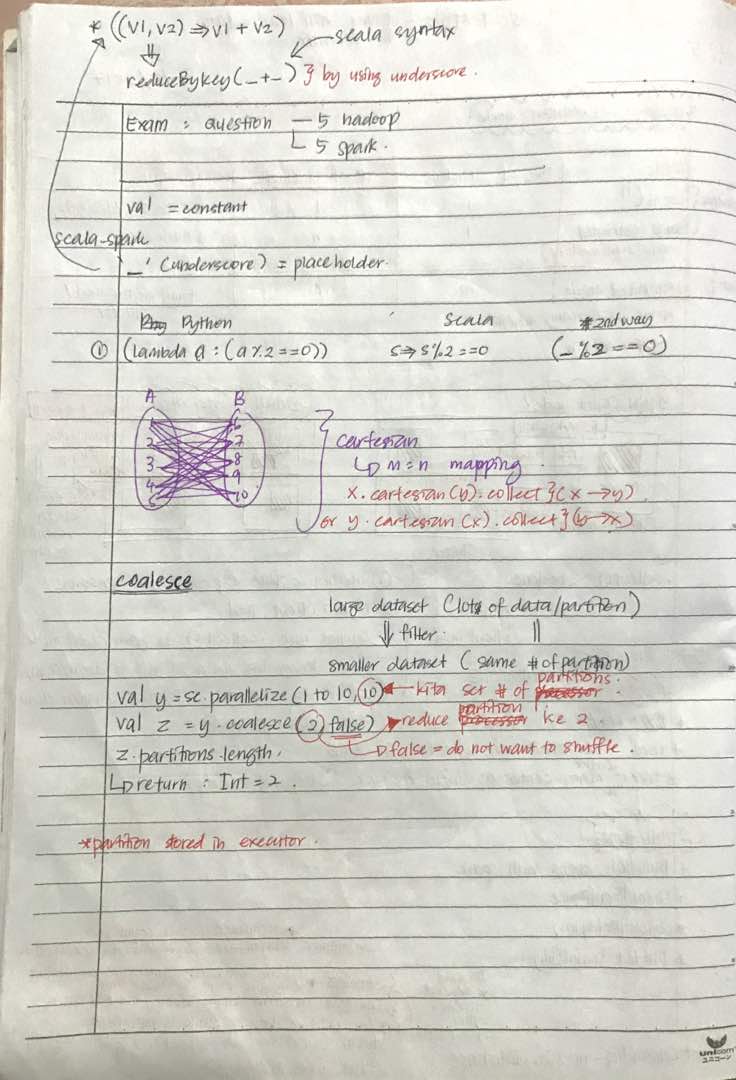 * ((V1, V2) ⇒ V1 + V2)
scala syntax
⇓
reduceByKey(_+_) } by using underscore.
Exam : question — 5 hadoop
↳ 5 spark.
val = constant
scala-spark
_' (underscore) = placeholder.
Python Scala *2nd way
① (lambda a : (a % 2 == 0)) s ⇒ s%2 == 0 (_%2 == 0)
A B
6
2 7
3 8
4 9
5 10
cartesian
↳ m=n mapping.
x.cartesian(y).collect } (x → y)
or y.cartesian(x).collect } (y → x)
coalesce
large dataset (lots of data/partition)
⇓ filter. ||
smaller dataset ( same # of partition)
partitions.
val y = sc.parallelize(1 to 10, 10) ← kita set # of processor.
partition
val z = y.coalesce(2, false) → reduce processor ke 2.
z.partitions.length. ↳ false = do not want to shuffle.
↳ return : Int = 2.
*partition stored in executor.
unicorn
ユニコーン